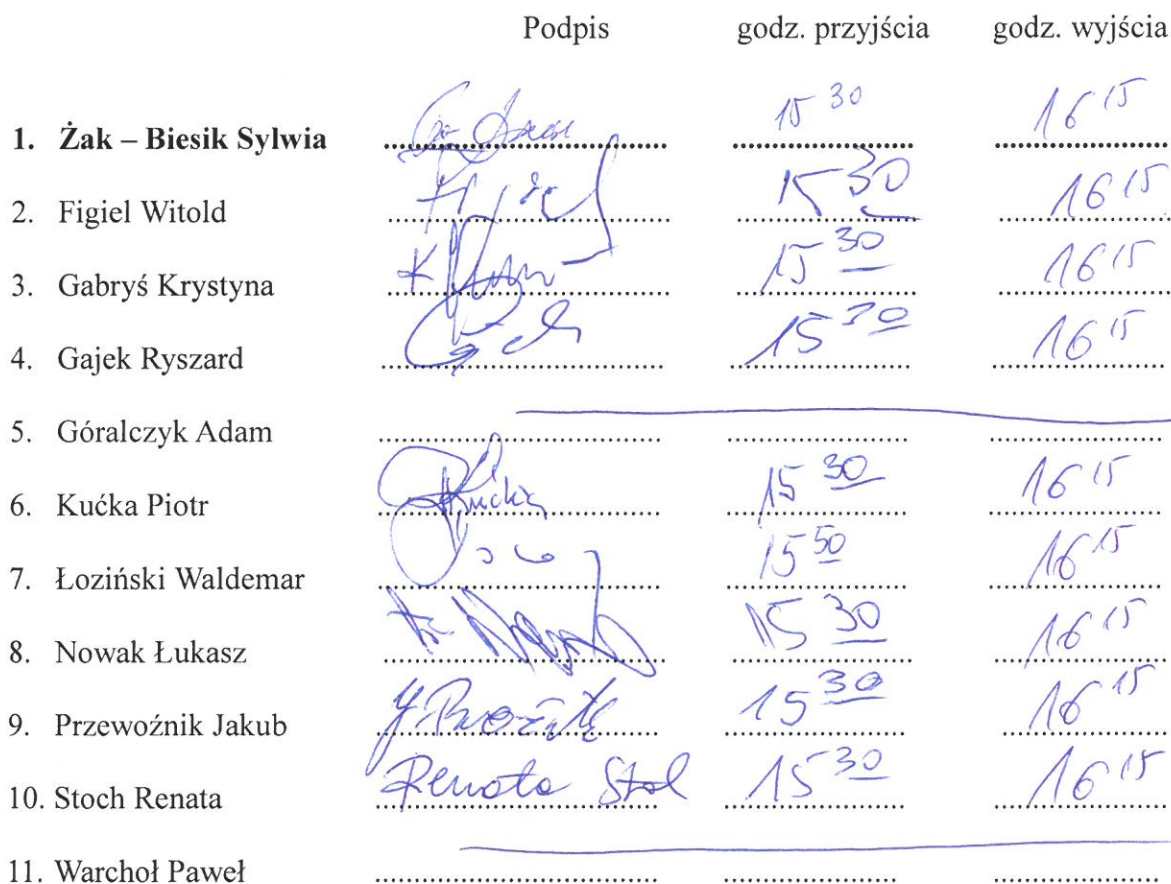 Podpis godz. przyjścia godz. wyjścia
1. Żak – Biesik Sylwia 15 30 16 15
2. Figiel Witold Figiel 15 30 16 15
3. Gabryś Krystyna 15 30 16 15
4. Gajek Ryszard 15 30 16 15
5. Góralczyk Adam
6. Kućka Piotr Kućka 15 30 16 15
7. Łoziński Waldemar 15 50 16 15
8. Nowak Łukasz 15 30 16 15
9. Przewoźnik Jakub 15 30 16 15
10. Stoch Renata Renata 15 30 16 15
11. Warchoł Paweł